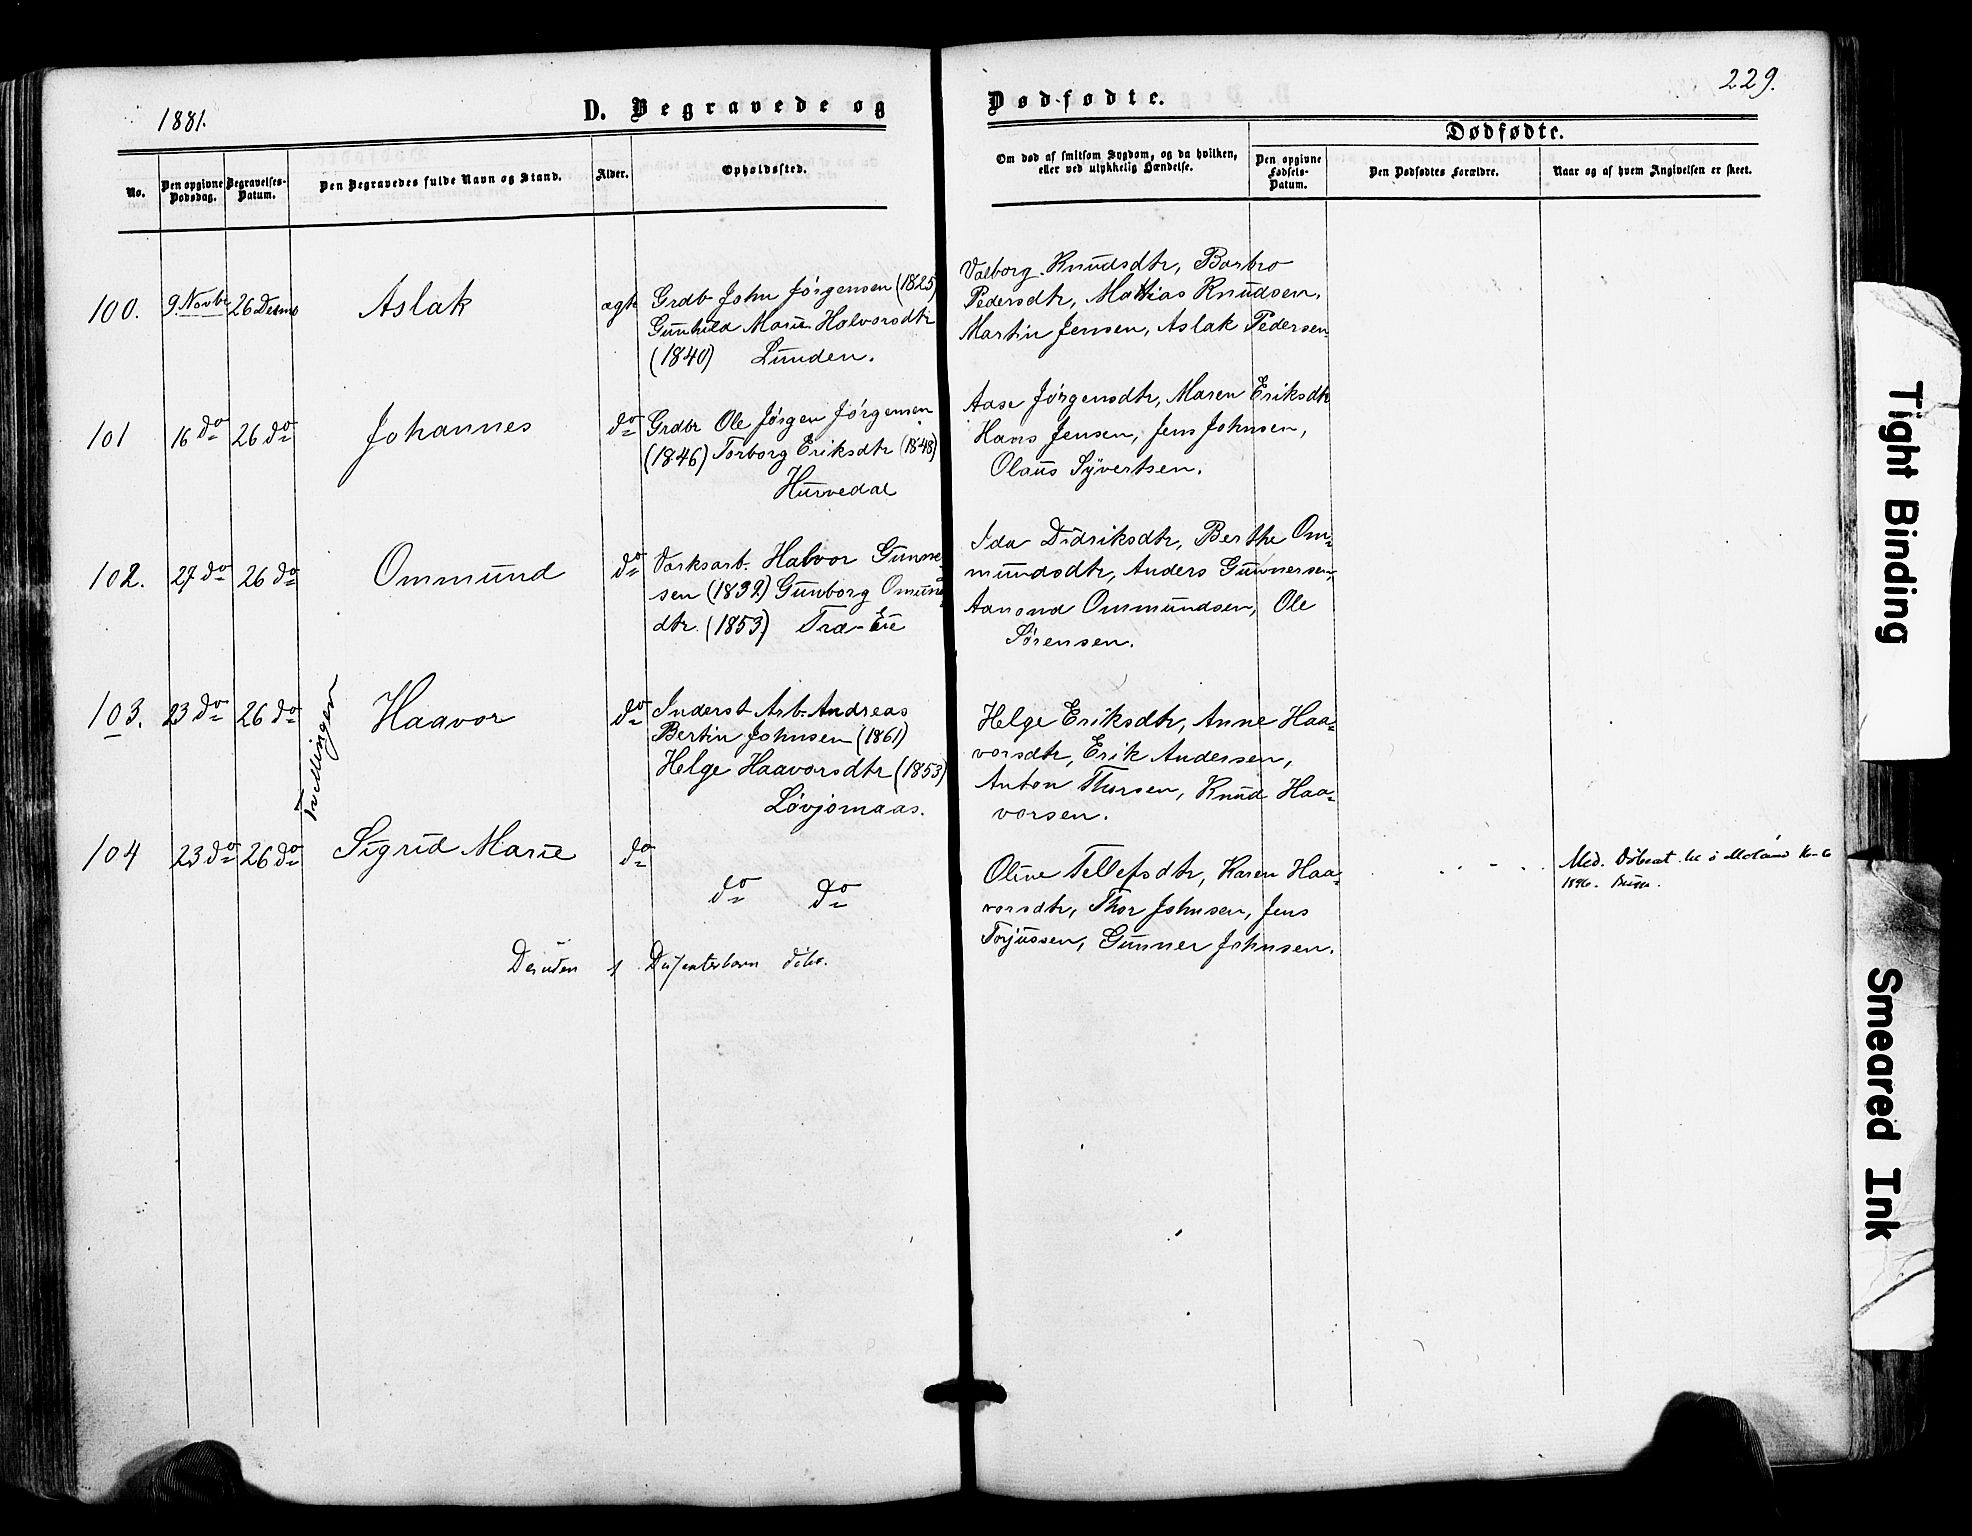 1881.
D. Begravede og
Dødfødte.
229.
No.
Den opgivne Dødsdag.
Begravelses-Datum.
Den Begravedes fulde Navn og Stand.
Alder.
Opholdssted.
Om død af smitsom Sygdom, og da hvilken,
eller ved ulykkelig Hændelse.
Dødfødte.
Den opgivne Fødsels-Datum.
Den Dødfødtes Forældre.
Naar og af hvem Angivelsen er skeet.
100. 9 Novbr 26 Decmb Aslak ægte
Grdb. John Jørgensen (1825)
Gunhild Marie Halvorsdtr
(1840) Lunden.
Valborg Knudsdtr, Barbro
Pedersdtr, Mathias Knudsen,
Martin Jensen, Aslak Pedersen
101 16 do 26 do Johannes do
Grdbr Ole Jørgen Jørgensen
(1846) Torborg Eriksdtr (1848)
Hurvedal
Aase Jørgensdtr, Maren Eriksdtr
Hans Jensen, Jens Johnsen,
Olaus Syvertsen.
102. 27 do 26 do Ommund do
Værksarb. Halvor Gunne-
sen (1832) Gunborg Omuns
dtr. (1853) Træ-Eie
Ida Didriksdtr, Berthe Om-
mundsdtr, Anders Gunnersen,
Aanond Ommundsen, Ole
Sørensen.
Tvillinger
103. 23 do 26 do Haavor do
Inderst Arb. Andreas
Bertin Johnsen (1861)
Helge Haavorsdtr (1853)
Løvjomaas.
Helge Eriksdtr, Anne Haa-
vorsdtr, Erik Andersen,
Anton Thorsen, Knud Haa-
vorsen.
104 23 do 26 do Sigrid Marie do
do do
Oline Tellefsdtr, Karen Haa-
vorsdtr, Thor Johnsen, Jens
Torjussen, Gunner Johnsen.
Med. Døbeat. til
1896.
Desuden 1 Dissenterbarn døbt.
Tight Binding
Smeared Ink